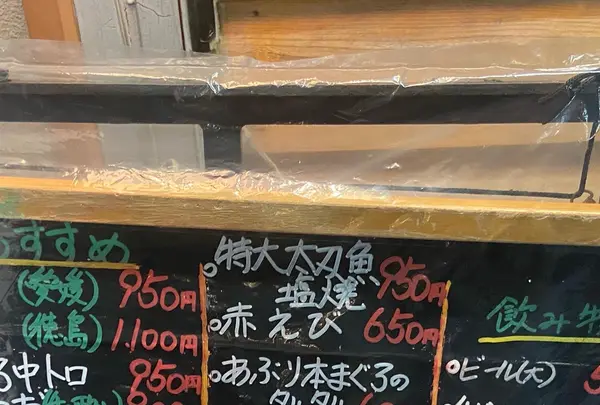 すすめ
(愛媛) 950円
(徳島) 1,100円
中トロ 950円
特大太刀魚
塩焼 950円
赤えび 650円
あぶり本まぐろの
タルタル
飲み物
ビール(大)